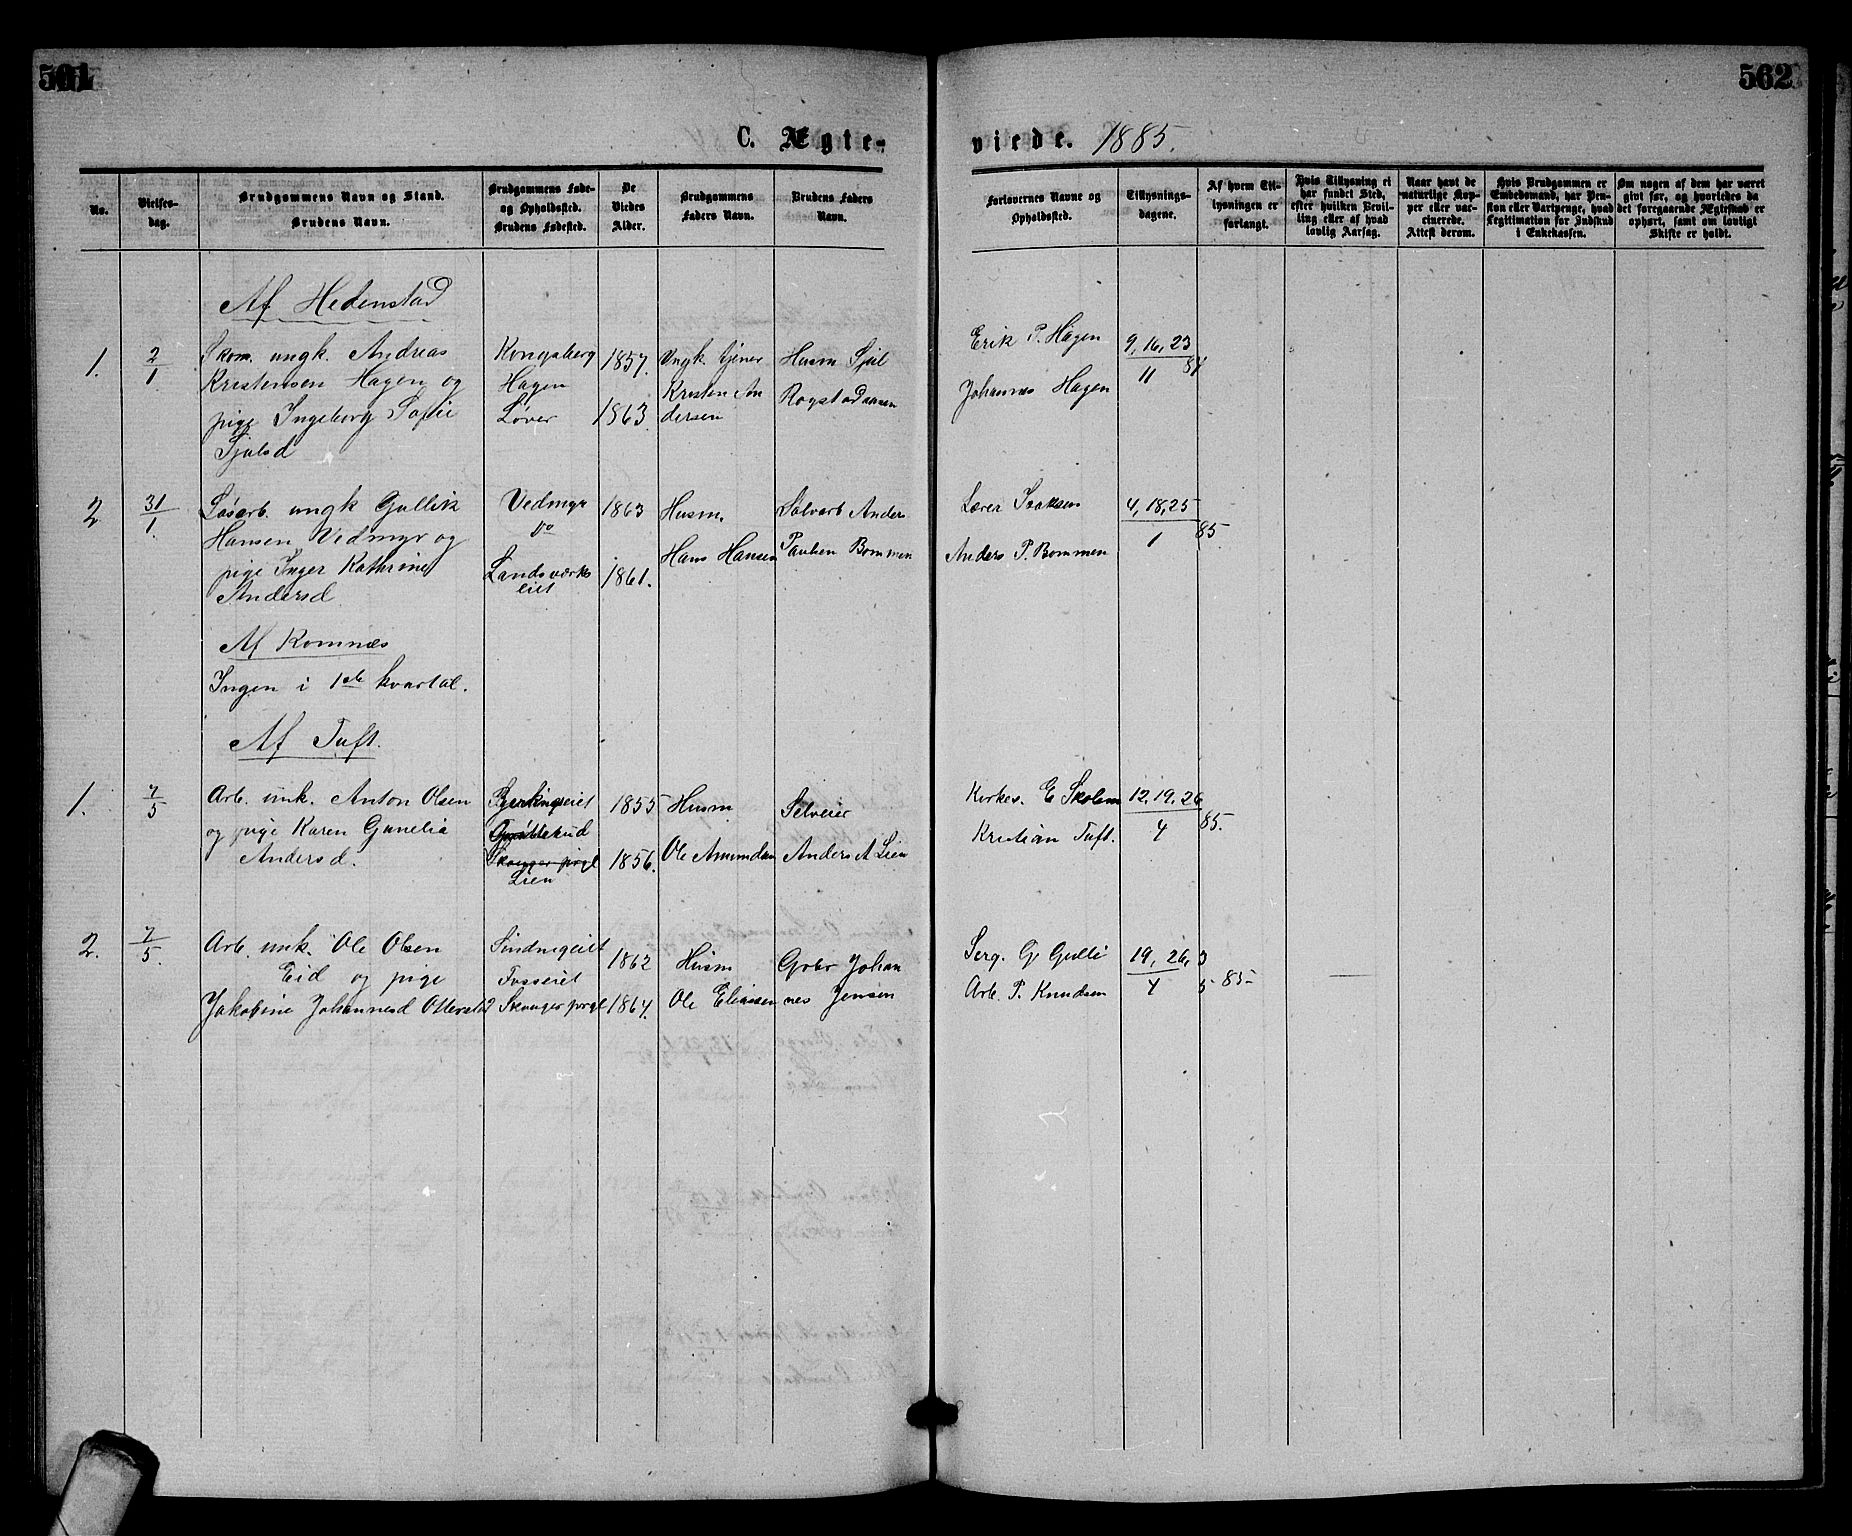 561
562
C. Ægte-
viede. 1885.
No.
Vielses-
dag.
Brudgommens Navn og Stand.
Brudens Navn.
Brudgommens Føde-
og Opholdssted.
Brudens Fødested.
De
Viedes
Alder.
Brudgommens
Faders Navn.
Brudens Faders
Navn.
Forlovernes Navne og
Opholdssted.
Tillysnings-
dagene.
Af hvem Til-
lysningen er
forlangt.
Hvis Tillysning ei
har fundet Sted,
efter hvilken Bevil-
ling eller af hvad
lovlig Aarsag.
Naar havt de
naturlige Kop-
per eller vac-
cinerede.
Attest derom.
Hvis Brudgommen er
Embedsmand, har Pen-
sion eller Vartpenge, hvad
Legitimation for Indskud
i Enkekassen.
Om nogen af dem har været
gift før, og hvorledes da
det foregaaende Ægteskab er
ophørt, samt om lovligt
Skifte er holdt.
Af Hedenstad
1.
2/1
Skom. ungk. Andreas
Kristensen Hagen og
pige Ingeborg Sofie
Sjulsd
Kongsberg
Hagen
Løver
1857.
1863.
Ungk. tjener
Kristen An
dersen
Husm Sjul
Rogstadaasen
Erik P. Hagen
Johannes Hagen
9, 16, 23
11 84
2
31/1.
Løsarb. ungk Gullik
Hansen Vedmyr og
pige Inger Kathrine
Andersd.
Vedmyr
do
Landsværks
eiet
1863
1861.
Husm.
Hans Hansen
Solvarb Anders
Paulsen Bommen
Lærer Isaksen
Anders P. Bommen
4, 18, 25
1 85.
Af Komnæs
Ingen i 1ste kvartal.
Af Tuft.
1.
7/5
Arb. unk. Anton Olsen
og pige Karen Gunelia
Andersd.
Skouger prgl
Lien
1855
1856.
Husm
Ole Amundsen
Selveier
Anders A Lien
Kirkes. E Skolem
Kristian Tuft.
12, 19, 26
4 85.
2.
7/5.
Arb. unk. Ole Olsen
Eid og pige
Jakobine Johannesd
Fosseiet
Skouger prgl
1862
1864.
Husm
Ole Eliassen
Gbr Johan
nes Jensen
Serg. G. Gulli
Arb. P. Knudsen
19, 26, 3
4 5 85